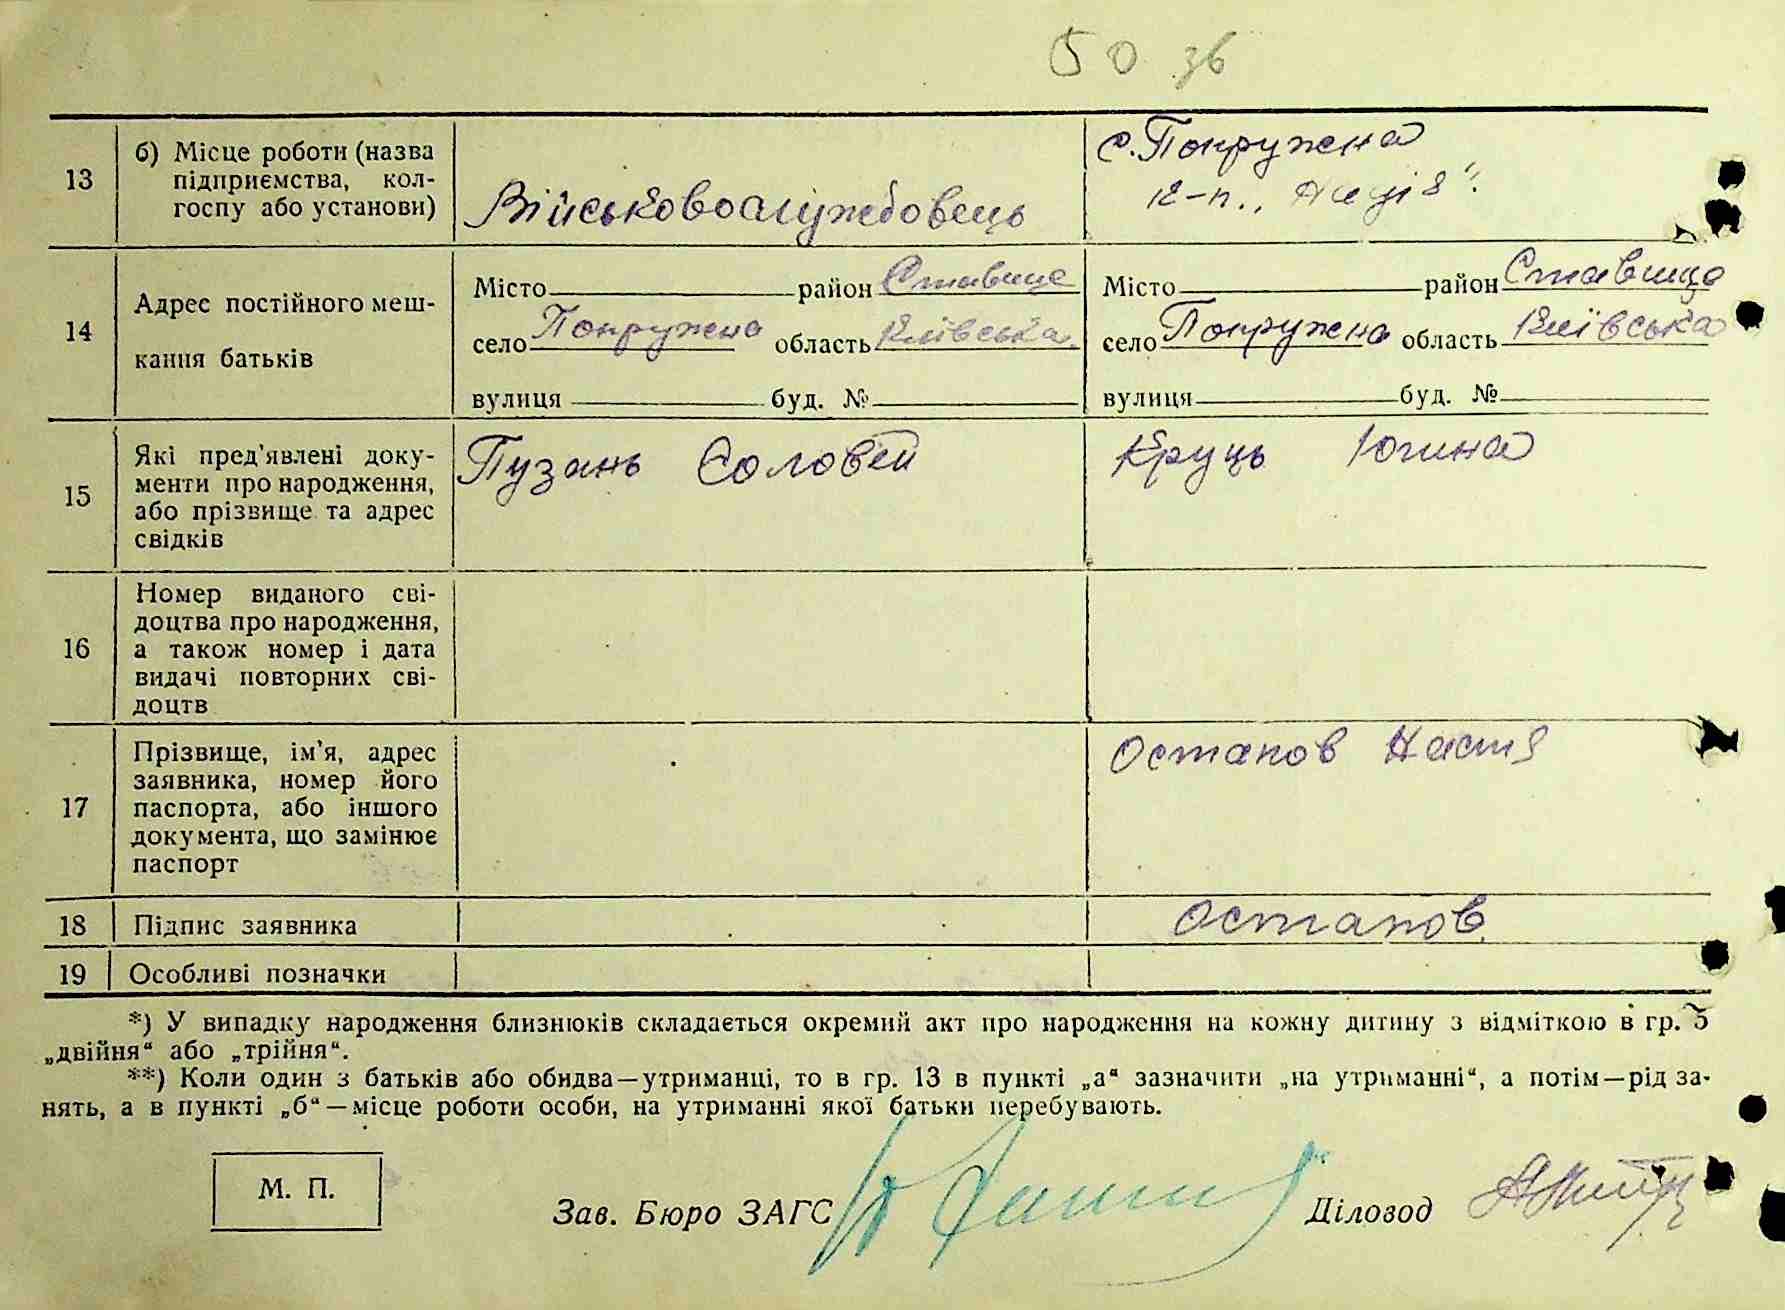 50 зв
13
б) Місце роботи (назва
підприємства, кол-
госпу або установи)
Військовослужбовець
с. Попружена
к-п.
14
Адрес постійного меш-
кання батьків
Місто район Ставище
село Попружена область Київська
вулиця буд. №
Місто район Ставище
село Попружена область Київська
вулиця буд. №
15
Які пред'явлені доку-
менти про народження,
або прізвище та адрес
свідків
Пузань Соловей
Круць Югина
16
Номер виданого сві-
доцтва про народження,
а також номер і дата
видачі повторних сві-
доцтв
17
Прізвище, ім'я, адрес
заявника, номер його
паспорта, або іншого
документа, що замінює
паспорт
Остапов Настя
18
Підпис заявника
Остапов
19
Особливі позначки
*) У випадку народження близнюків складається окремий акт про народження на кожну дитину з відміткою в гр. 5
„двійня“ або „трійня“.
**) Коли один з батьків або обидва—утриманці, то в гр. 13 в пункті „а“ зазначити „на утриманні“, а потім—рід за-
нять, а в пункті „б“—місце роботи особи, на утриманні якої батьки перебувають.
М. П.
Зав. Бюро ЗАГС
Діловод